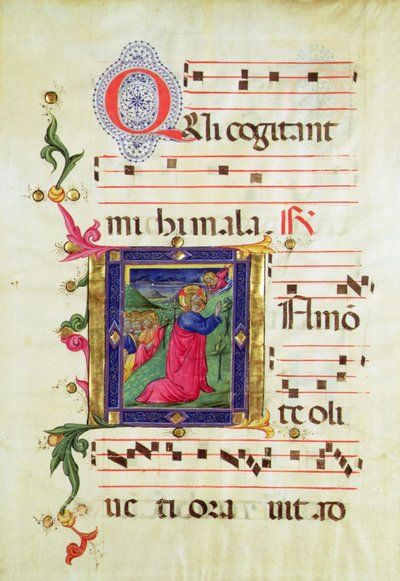 QUi cogitant
michi mala. ℟
N mõ
te oli
ue ti ora uit ad